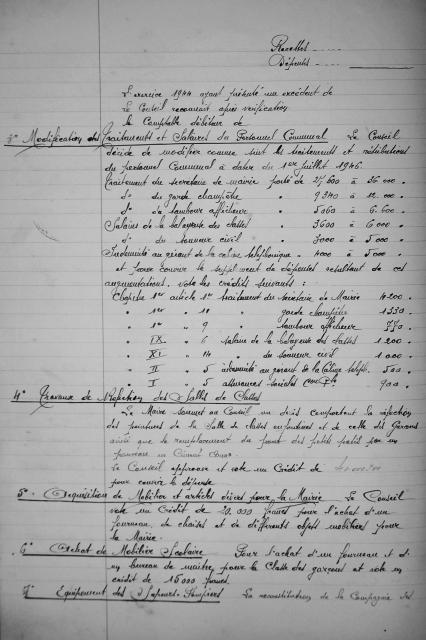 Recettes .....
Dépenses .....
L'exercice 1944 ayant présenté un excédent de
Le Conseil reconnait après vérification
le Comptable débiteur de
3° Modification des Traitements et Salaires du Personnel Communal Le Conseil
décide de modifier comme suit les traitements et rétributions
du personnel Communal à dater du 1er juillet 1946.
Traitement du secrétaire de mairie porté de 21/600 à 26000 .
d° du garde champêtre " 9340 à 12.000 .
d° du tambour afficheur " 5060 à 6.600 .
Salaire de la balayeuse des classes " 3600 à 6000 .
d° du sonneur civil " 3000 à 5000 .
Indemnité au gérant de la cabine téléphonique . 4000 à 5000 .
et pour couvrir le supplément de dépenses résultant de ces
augmentations, vote les crédits suivants :
Chapitre 1er article 1er traitement du Secrétaire de Mairie 4200 .
" 1er " 10 " garde champêtre 1330 .
" 1er " 9 " tambour afficheur 770 .
" IX " 6 salaire de la balayeuse des classes 1200 .
" XI " 14 du sonneur civil 1000 .
" II " 5 indemnité au gérant de la Cabine téléph. 500 .
" I " 5 assurances sociales 900 .
4° Travaux de Réfection des Salles de Classes
Le Maire soumet au Conseil un devis comportant la réfection
des peintures de la Salle de classes enfantines et de celle des Garçons
ainsi que le remplacement du
Le Conseil approuve et vote un Crédit de
pour couvrir la dépense
5° - Acquisition de Mobilier et articles divers pour la Mairie Le Conseil
vote un Crédit de 20.000 francs pour l'achat d'un
fourneau, de chaises et de différents objets mobiliers pour
la Mairie.
6° Achat de Mobilier Scolaire Pour l'achat d'un fourneau et d'
un bureau de maître, pour la Classe des garçons est voté un
crédit de 15000 francs.
7° Equipement des Sapeurs-Pompiers La reconstitution de la Compagnie des